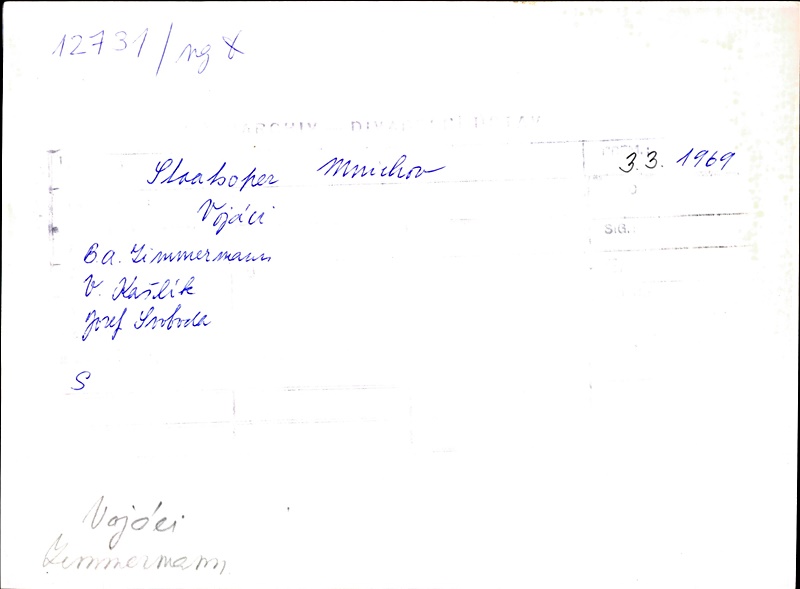 12731/ng X
ARCHIV DIVADELNÍ ÚSTAV
Staatsoper Mnichov 3.3. 1969
Vojáci
SIG.:
B a. Zimmermann
V. Kašlík
Josef Svoboda
S
Vojáci
Zimmermann